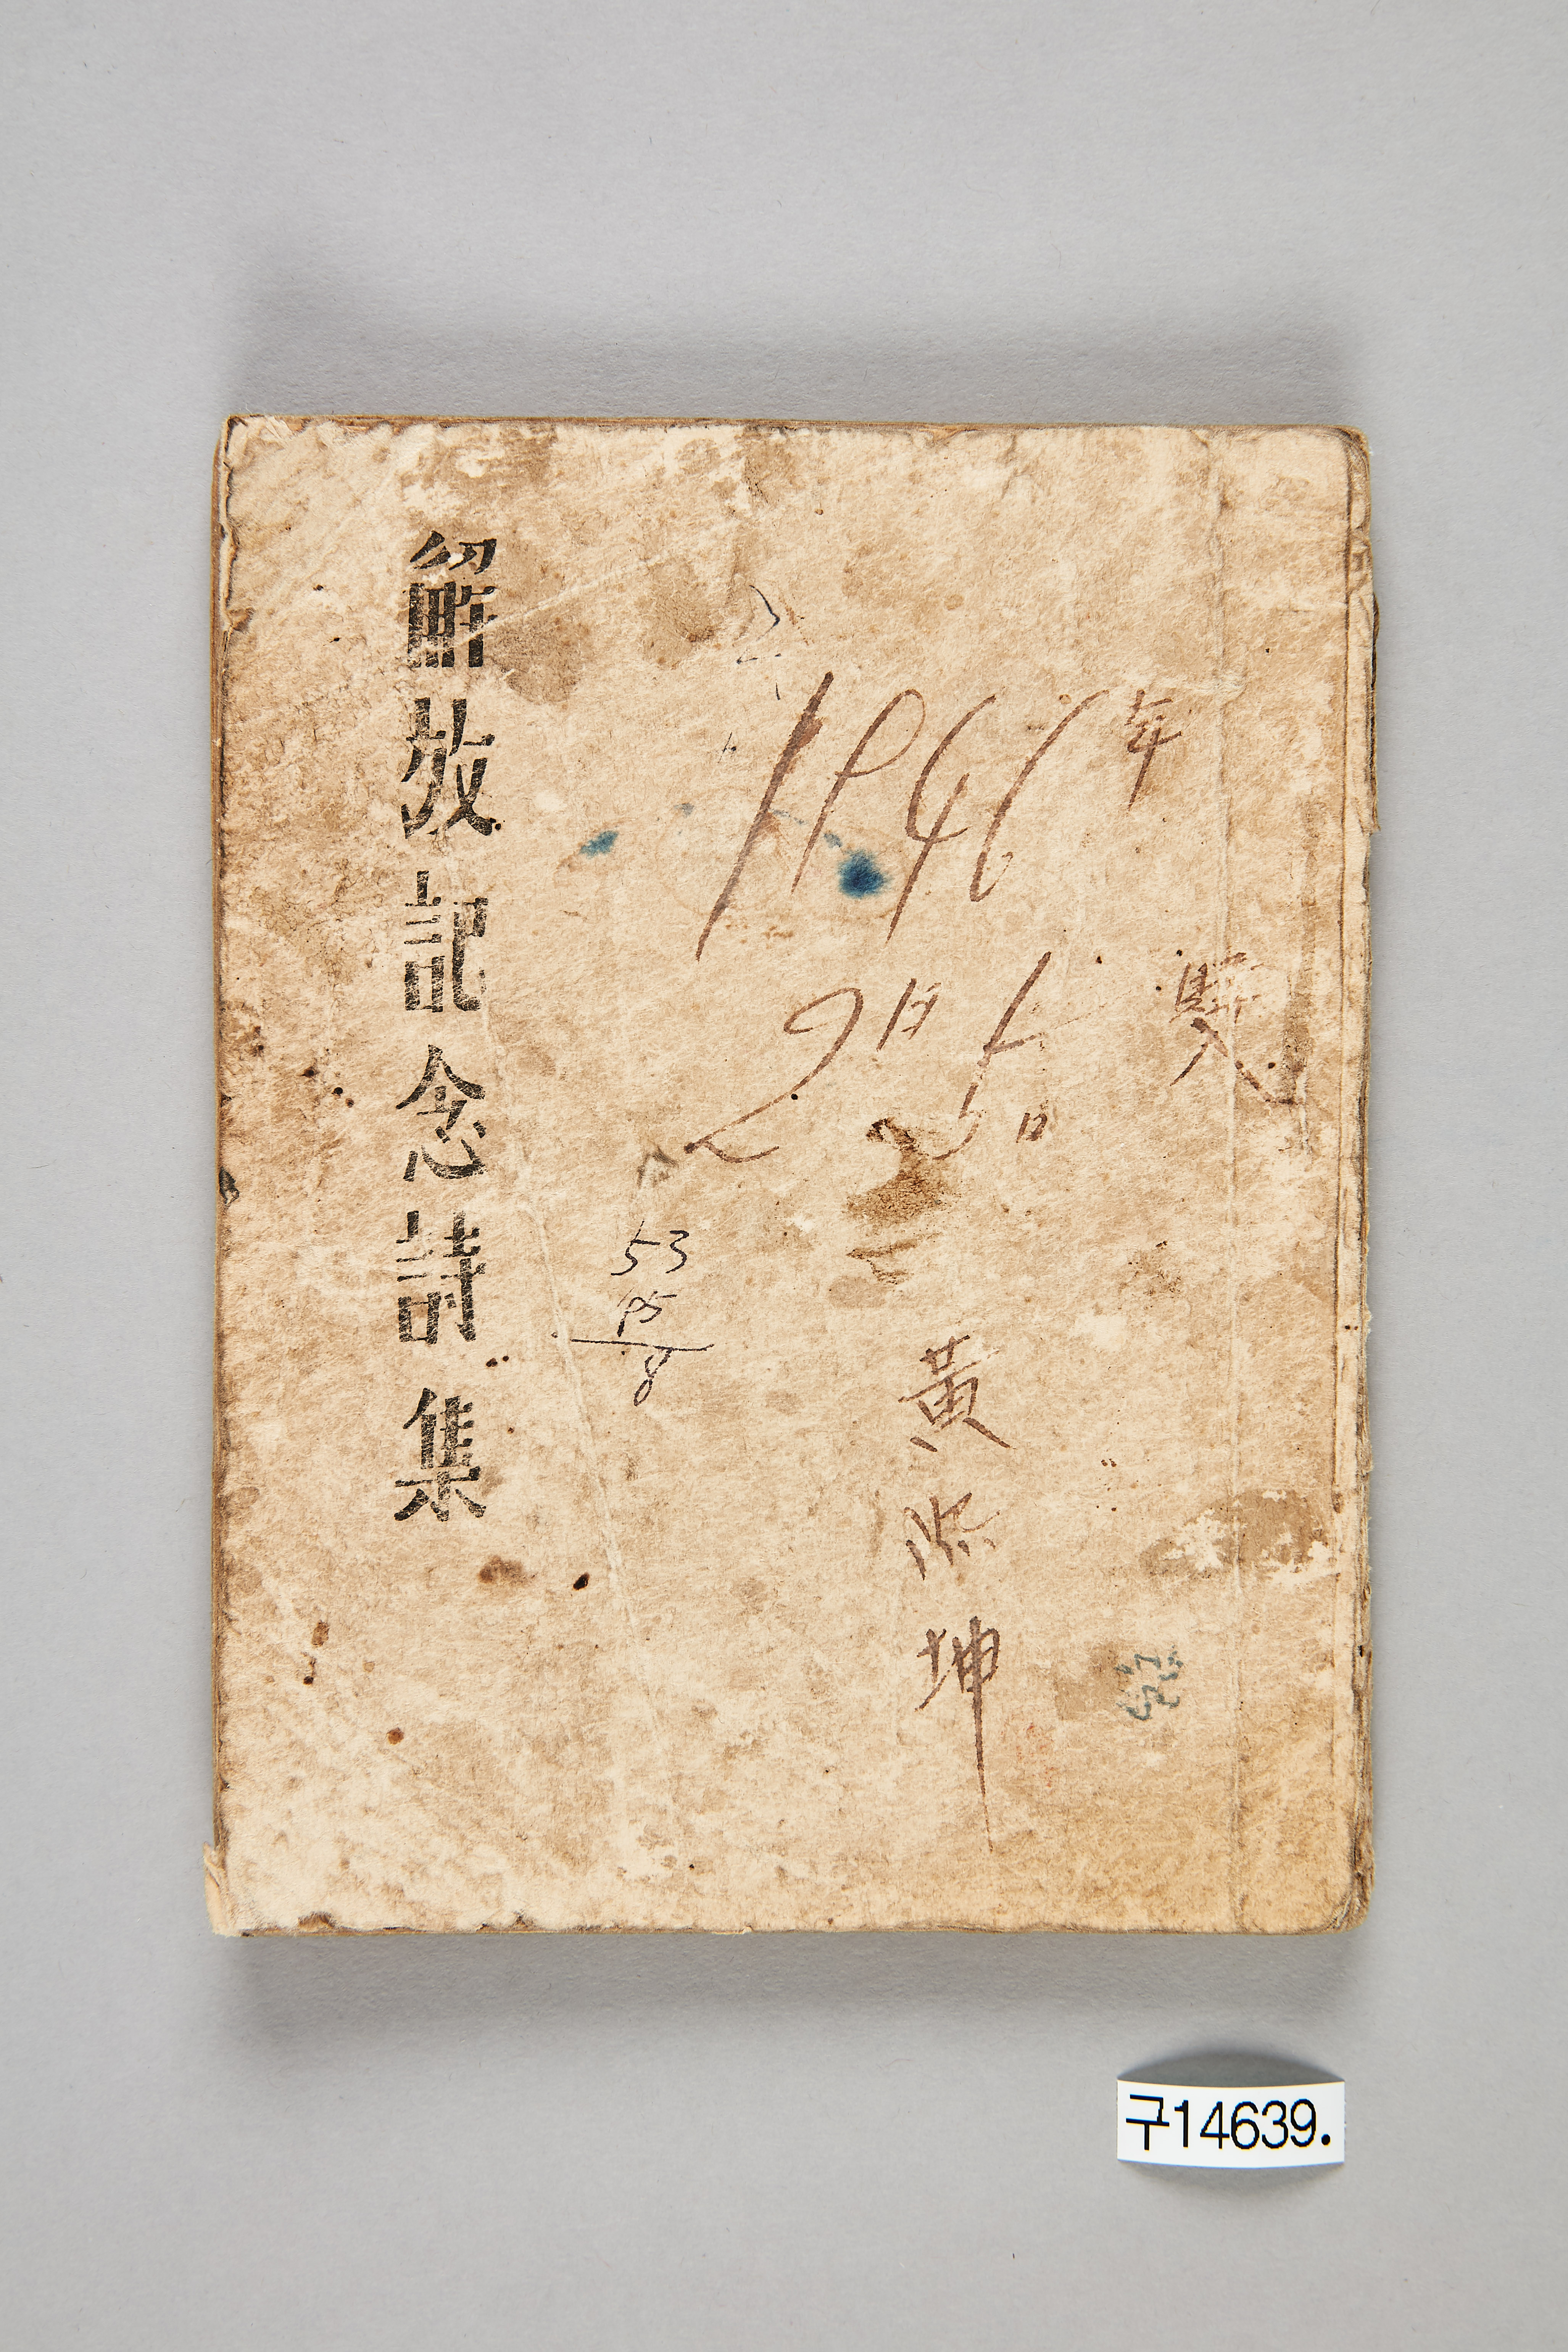 解放記念詩集
1946年
2月5日
買入
黃
坤
53
95
8
구14639.